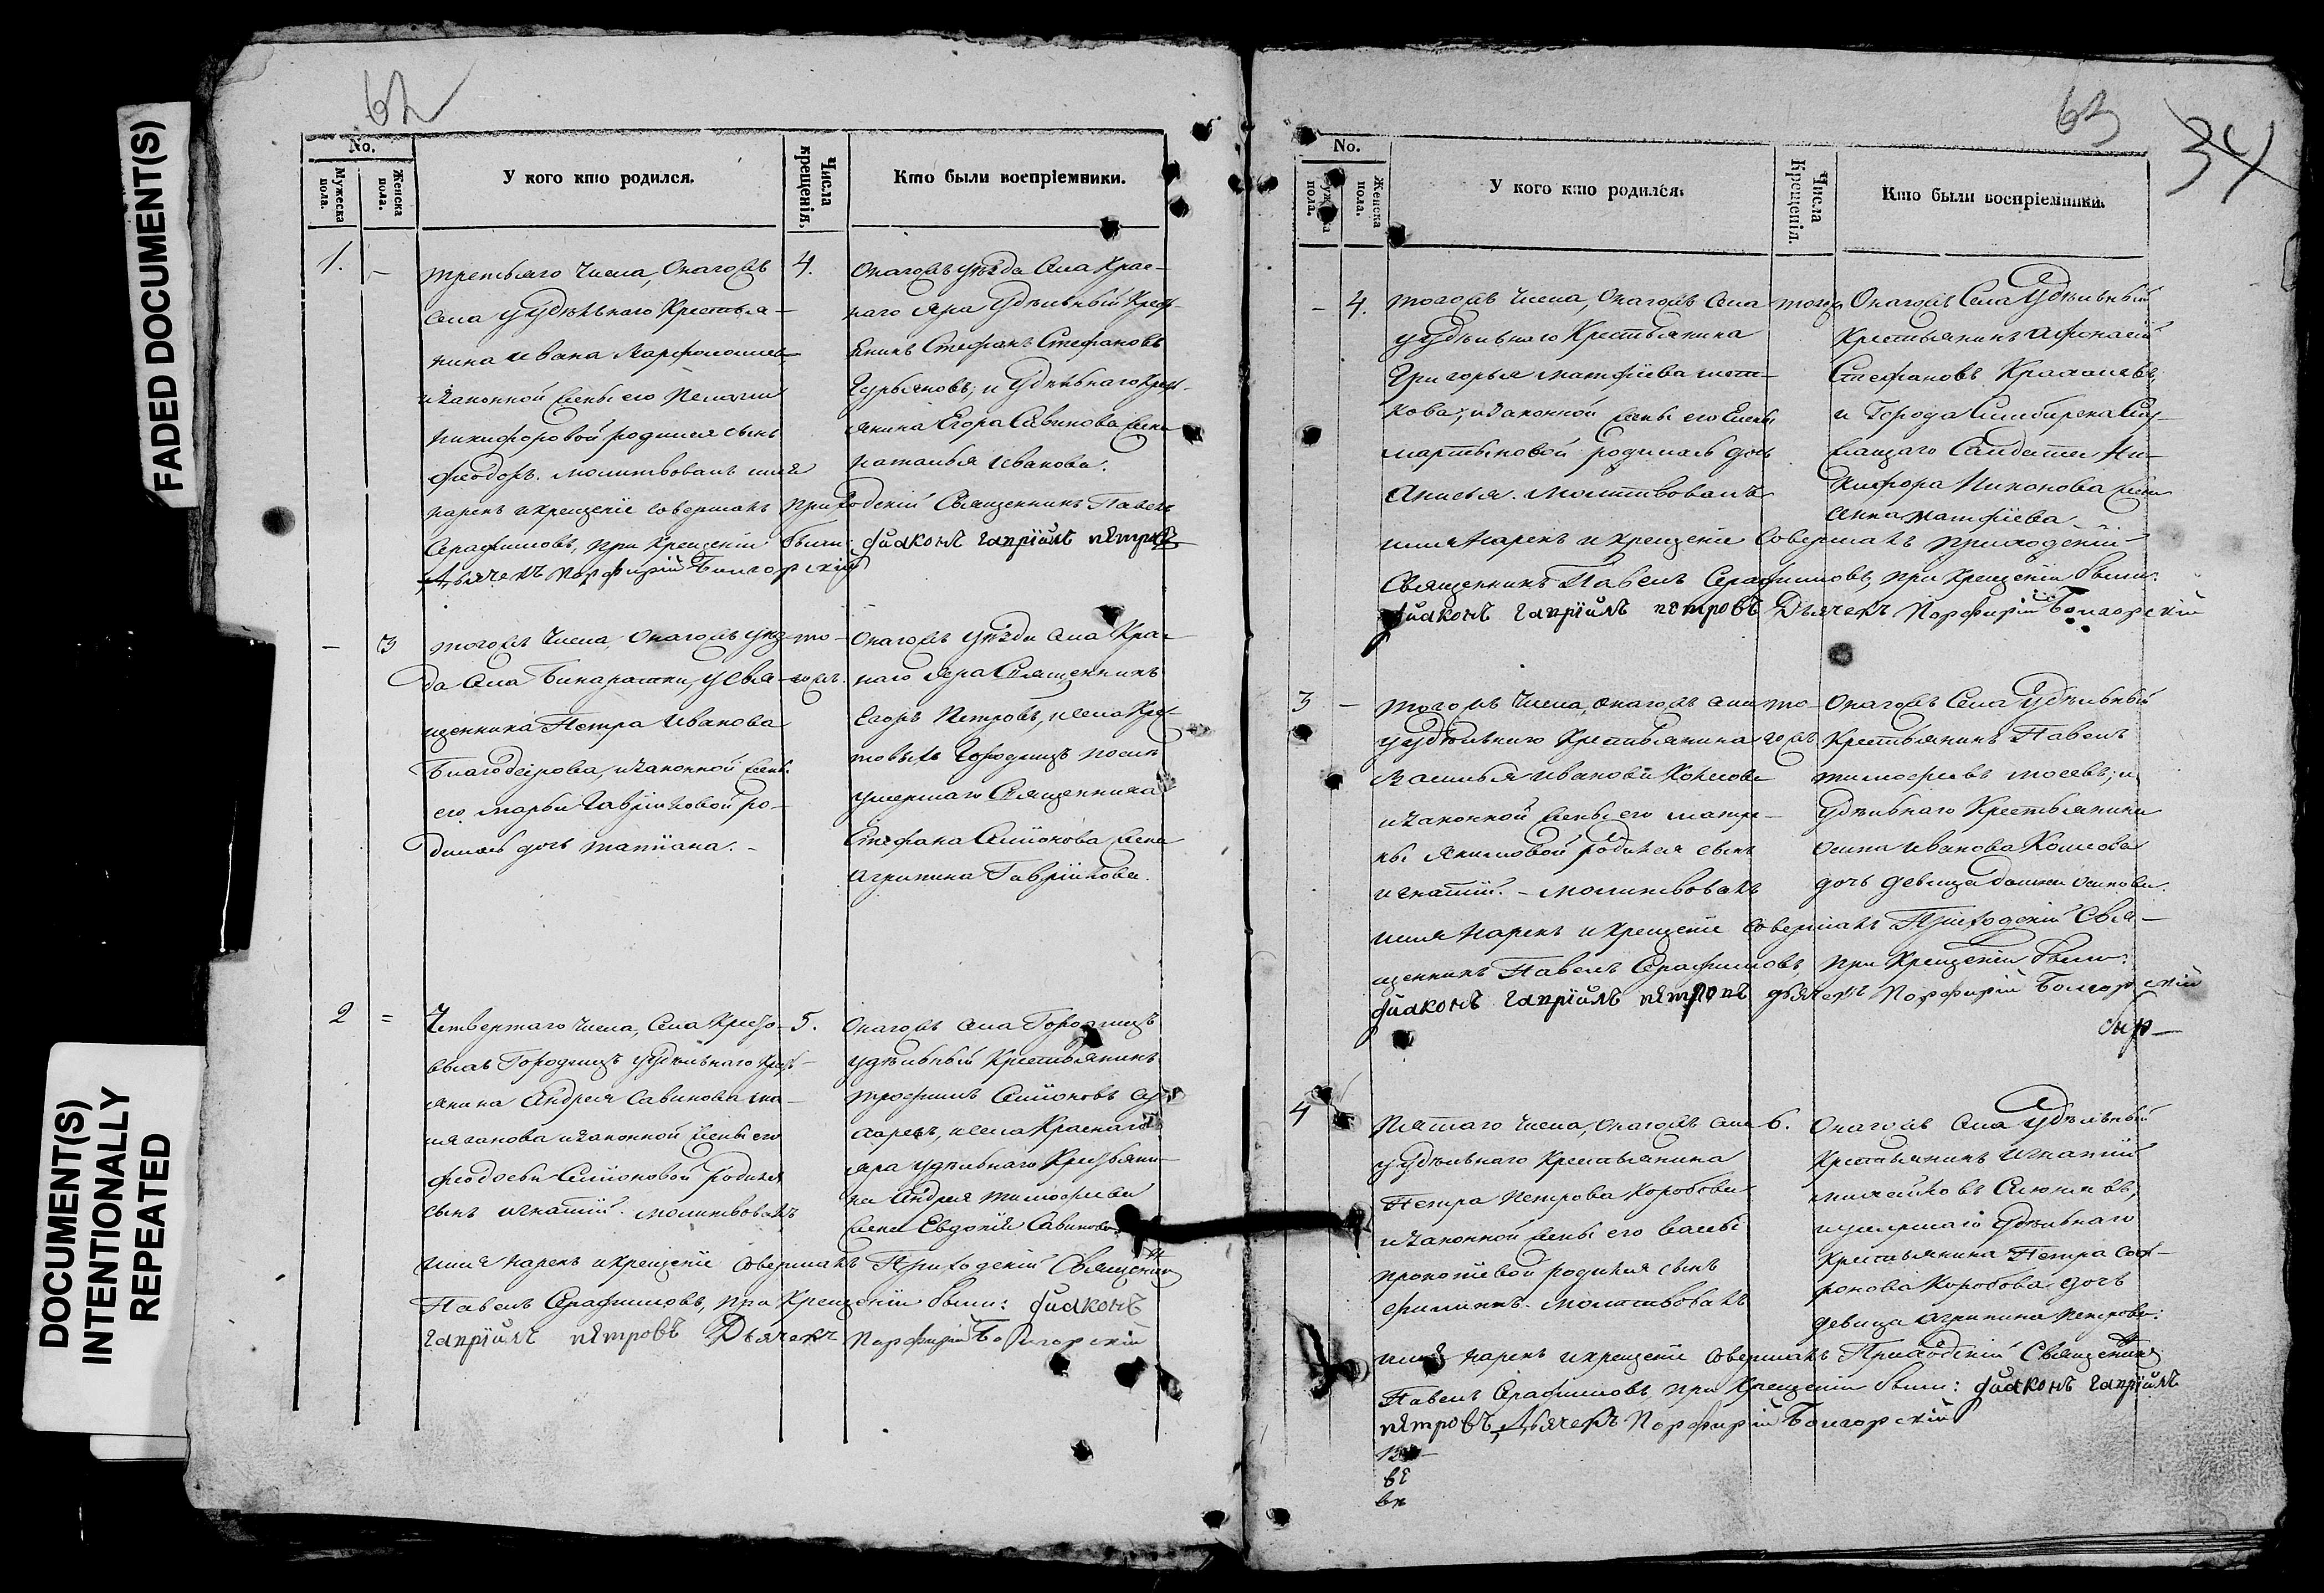 FADED DOCUMENT(S)
DOCUMENT(S)
INTENTIONALLY
REPEATED
62
No.
Мужеска пола.
Женска пола.
У кого кто родился.
Числа крещенія.
Кто были воспріемники.
1. –
третьяго числа, Онагожъ
села у Удѣльнаго Крестья-
нина Ивана
и законной жены его Пелагіи
Никифоровой родился сынъ
Феодоръ. молитвовалъ имя
нарекъ и крещеніе совершалъ приходскій Священникъ Павелъ
Серафимовъ, при крещеніи были: діаконъ гавріилъ пѣтровъ
Дьячекъ Порфирій Болгорскій
4.
Онагожъ уѣзда Села Крас-
наго Яра Удѣльный Крест-
янинъ Стефанъ Стефановъ
Гурьяновъ; и Удѣльнаго Крест-
янина Егора Савинова жена
Наталья Иванова.
– 3
тогожъ числа, Онагожъ уѣз-
да села Бинарадки, у Свя-
щенника Петра Иванова
Благодѣрова, и законной жены
его Марьи Гавриловой ро-
дилась дочь Татіана. –
то-
гожъ.
Онагожъ уѣзда села Крас-
наго Яра Священникъ
Егоръ Петровъ, и села Крес-
товыхъ Городищъ послѣ
умершаго Священника
Стефана Симіонова жена
Агрипина Гаврилова.
2 =
Четвертаго числа, Села Кресто-
выхъ Городищъ у Удѣльнаго Крест-
янина Андрея Савинова
и законной жены его
Феодосьи Симіоновой родился
сынъ Игнатій. молитвовалъ
имя нарекъ и крещеніе совершалъ Приходскій Священникъ
Павелъ Серафимовъ, при Крещеніи были: діаконъ
гавріилъ пѣтровъ Дьячекъ Порфирій Болгорскій
5.
Онагожъ села Городищъ
удѣльный Крестьянинъ
Трофимъ Симіоновъ
и села Краснаго
яра удѣльнаго Крестьяни-
на Андрея Тимофеева
жена Евдокія Савинова.
63
34
No.
Мужеска пола.
Женска пола.
У кого кто родился.
Числа Крещенія.
Кто были воспріемники.
– 4.
тогожъ числа, Онагожъ села
у Удѣльнаго Крестьянина
Григорья Матфѣева
и законной жены его Елены
Мартыновой родилась дочь
Анисья. Молитвовалъ
имя нарекъ и крещеніе совершалъ приходскій
Священникъ Павелъ Серафимовъ, при крещеніи были:
діаконъ гавріилъ пѣтровъ Дьячекъ Порфирій Болгорскій
тогожъ
Онагожъ Села Удѣльный
Крестьянинъ Афонасій
Стефановъ
и Города Симбирска Слу-
жащаго Салдата Ни-
кифора Никонова жена
Анна Матфѣева
3 –
тогожъ числа, онагожъ села
у Удѣльнаго Крестьянина
Василья Иванова
и законной жены его Матре-
ны Якимовой родился сынъ
Игнатій. – молитвовалъ
имя нарекъ и крещеніе совершалъ Приходскій Свя-
щенникъ Павелъ Серафимовъ, при Крещеніи были:
діаконъ гавріилъ пѣтровъ дьячекъ Порфирій Болгорскій
то-
гожъ
Онагожъ Села Удѣльный
Крестьянинъ Павелъ
Тимофеевъ и
Удѣльнаго Крестьянина
Осипа Иванова
дочь девица Осипова.
4
Пятаго числа, онагожъ села
у Удѣльнаго Крестьянина
Петра Петрова Коробова
и законной жены его
Прокопіевой родился сынъ
Филиппъ. молитвовалъ
имя нарекъ и крещеніе совершалъ Приходскій Священникъ
Павелъ Серафимовъ, при Крещеніи были: діаконъ гавріилъ
пѣтровъ, Дьячекъ Порфирій Болгорскій
6.
Онагожъ села удѣльный
Крестьянинъ Игнатій
и умершаго Удѣльнаго
Крестьянина Петра Соф-
ронова Коробова дочь
девица Агрипина Петрова.